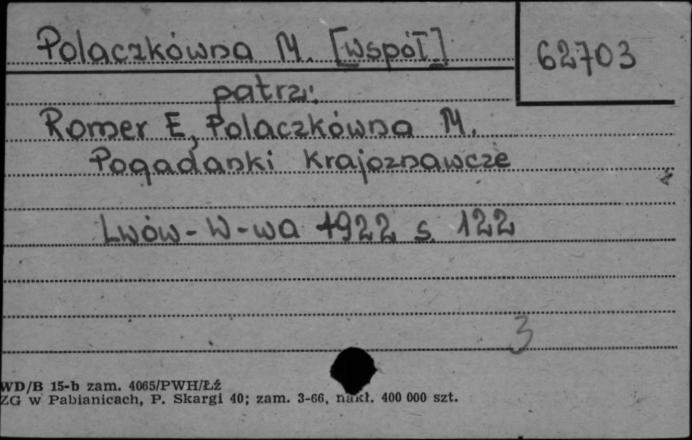 Polaczkówna M. [współ.]
62703
patrz:
Romer E, Polaczkówna M.
Pogadanki krajoznawcze
Lwów-W-wa 1922 s. 122
3
WD/B 15-b zam. 4065/PWH/Łź
ZG w Pabianicach, P. Skargi 40; zam. 3-66, nakł. 400 000 szt.